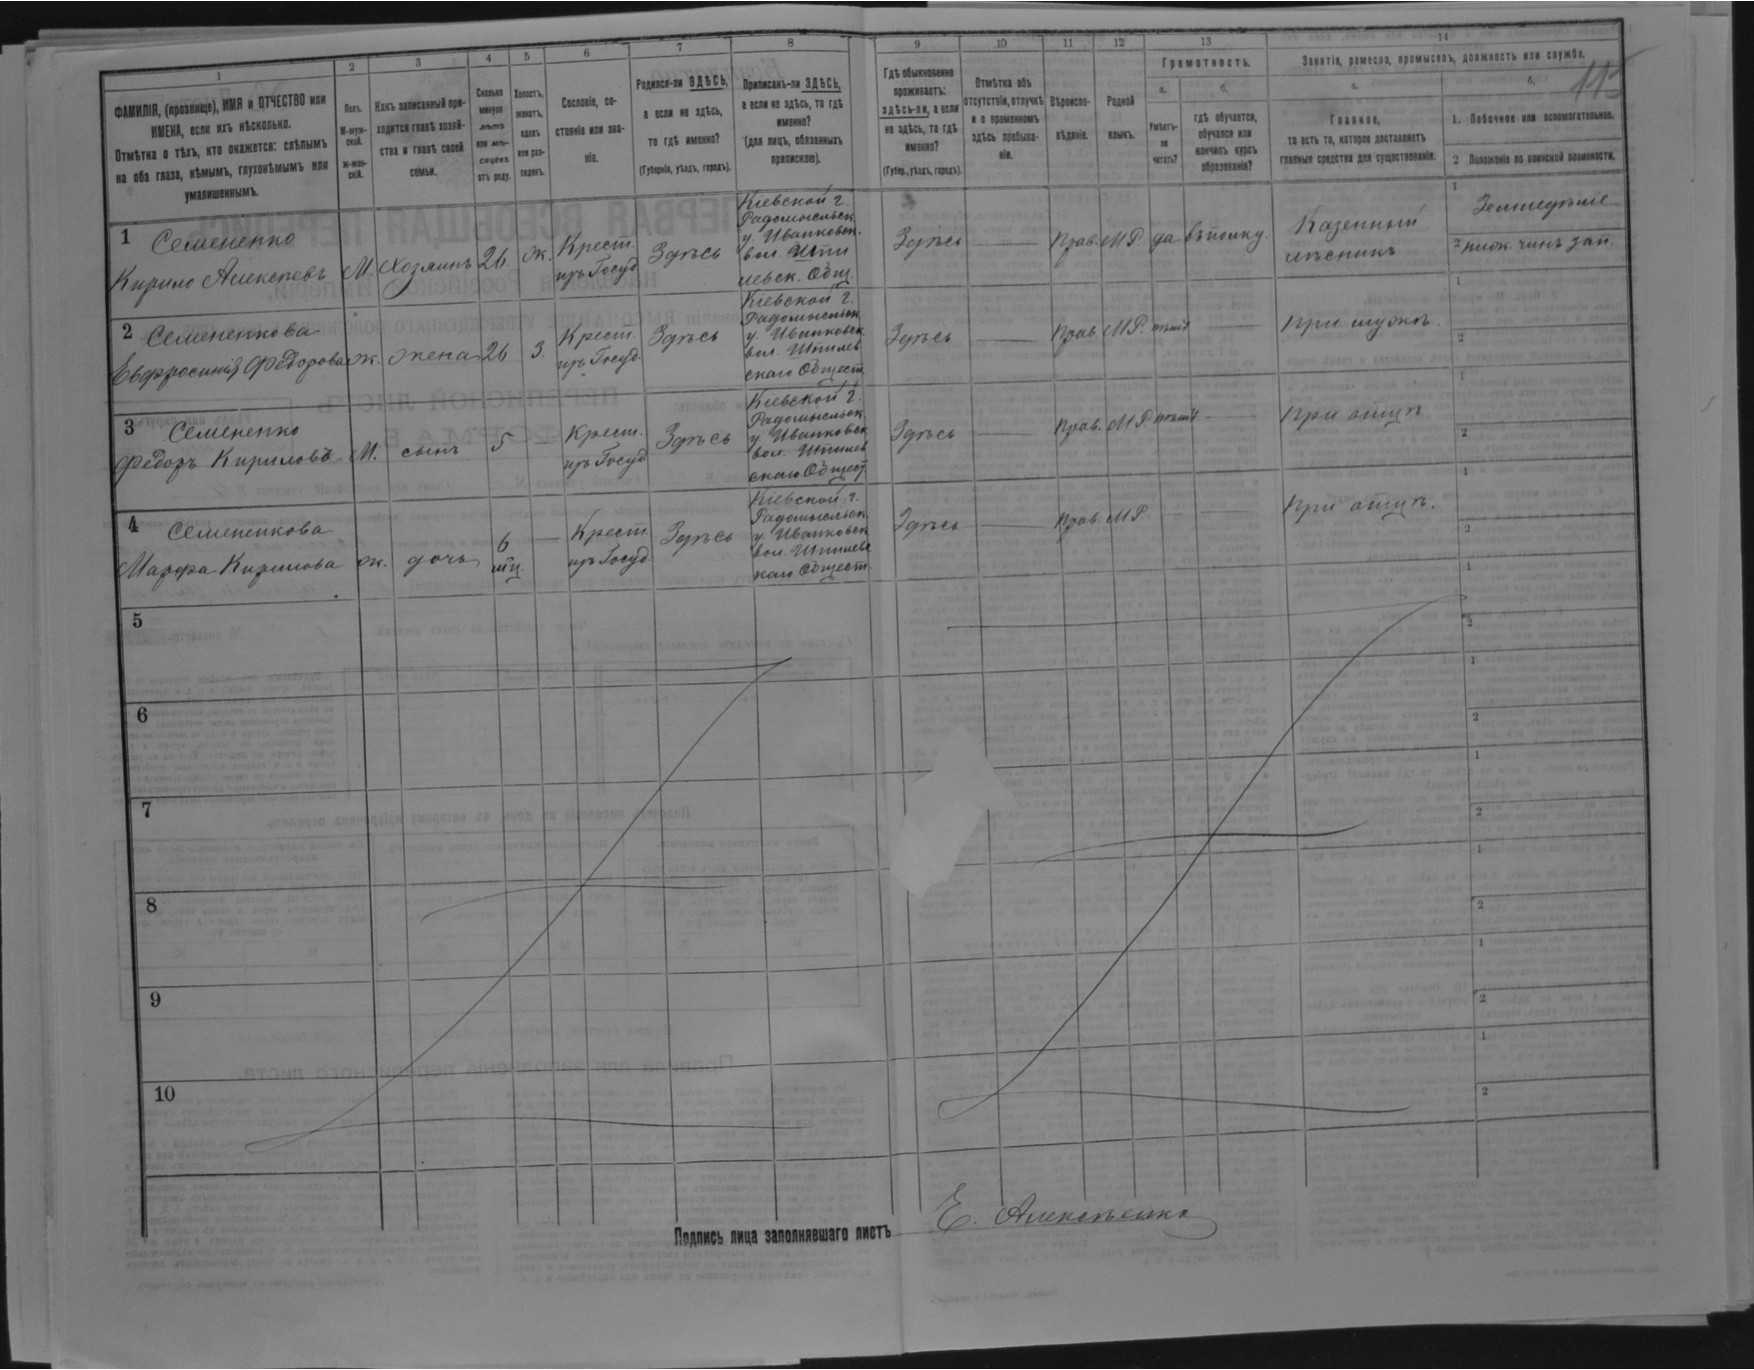 115
1 2 3 4 5 6 7 8 9 10 11 12 13 14
ФАМИЛІЯ, (прозвище), ИМЯ и ОТЧЕСТВО или
ИМЕНА, если ихъ нѣсколько.
Отмѣтка о тѣхъ, кто окажется: слѣпымъ
на оба глаза, нѣмымъ, глухонѣмымъ или
умалишеннымъ.
Полъ.
М-муж-
ской.
Ж-жен-
скій.
Какъ записанный при-
ходится главѣ хозяй-
ства и главѣ своей
семьи.
Сколько
минуло
лѣтъ
или мѣ-
сяцевъ
отъ роду.
Холостъ,
женатъ,
вдовъ
или раз-
веденъ.
Сословіе, со-
стояніе или зва-
ніе.
Родился-ли ЗДѢСЬ,
а если не здѣсь,
то гдѣ именно?
(Губернія, уѣздъ, городъ).
Приписанъ-ли ЗДѢСЬ,
а если не здѣсь, то гдѣ
именно?
(для лицъ, обязанныхъ
припискою).
Гдѣ обыкновенно
проживаетъ:
здѣсь-ли, а если
не здѣсь, то гдѣ
именно?
(Губер., уѣздъ, городъ).
Отмѣтка объ
отсутствіи, отлучкѣ
и о временномъ
здѣсь пребыва-
ніи.
Вѣроиспо-
вѣданіе.
Родной
языкъ.
Грамотность.
а.
Умѣетъ-
ли
читать?
б.
гдѣ обучается,
обучался или
кончилъ курсъ
образованія?
Занятіе, ремесло, промыселъ, должность или служба.
а.
Главное,
то есть то, которое доставляетъ
главныя средства для существованія.
б.
1. Побочное или вспомогательное.
2 Положеніе по воинской повинности.
1 Семененко
Кирило Алексѣевъ
М. Хозяинъ 26 ж. Крест.
изъ Госуд.
Здѣсь
Кіевской г.
Радомысльск.
у. Иванковск.
вол. Шпи
левск. Общ.
Здѣсь — Прав. М.Р. да въ полку.
Казенный
лѣсникъ
1 Земледѣліе
2 нижн. чинъ зап.
2 Семененкова
Евфросинія Федорова
ж. жена 26 з. Крест.
изъ Госуд.
Здѣсь
Кіевской г.
Радомысльск.
у. Иванковск.
вол. Шпилев
скаго Общест.
Здѣсь — Прав. М.Р. нѣтъ — При мужѣ.
1
2
3 Семененко
Федоръ Кириловъ
М. сынъ 5 Крест.
изъ Госуд.
Здѣсь
Кіевской г.
Радомысльск.
у. Иванковск.
вол. Шпилев
скаго Общест.
Здѣсь — Прав. М.Р. нѣтъ — При отцѣ
1
2
4 Семененкова
Марфа Кирилова
ж. дочь 6
мц. — Крест.
изъ Госуд.
Здѣсь
Кіевской г.
Радомысльск.
у. Иванковск.
вол. Шпилевс
каго Общест.
Здѣсь — Прав. М.Р. — — При отцѣ.
1
2
5
1
2
6
1
2
7
1
2
8
1
2
9
1
2
10
1
2
Подпись лица заполнявшаго листъ Е. Алексѣенко